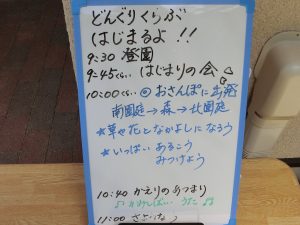 どんぐりくらぶ
はじまるよ!!
9:30 登園
9:45くらい はじまりの会
10:00くらい ◎おさんぽに出発
南園庭→森→北園庭
★草や花となかよしになろう
★いっぱいあるこう
みつけよう
10:40 かえりのあつまり
♪ うた ♫
11:00 さようなら